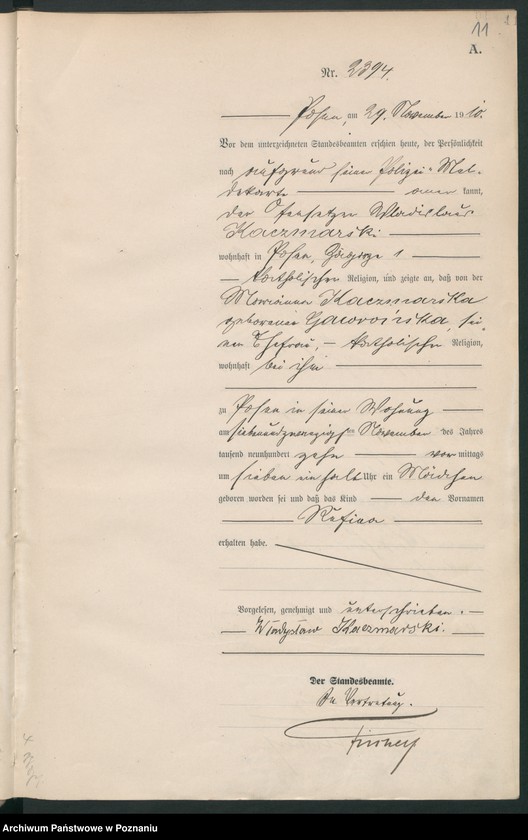 11
A.
Nr. 2394.
Posen, am 29. November 1910.
Vor dem unterzeichneten Standesbeamten erschien heute, der Persönlichkeit
nach aufgrund seiner Polizei-Mel-
dekarte kannt,
der Ofensetzer Wladislaus
Kaczmarski
wohnhaft in Posen, 1
katholischer Religion, und zeigte an, daß von der
Marianna Kaczmarska
geborenen sei-
ner Ehefrau, katholischer Religion,
wohnhaft bei ihm
zu Posen in seiner Wohnung
am siebenundzwanzigsten November des Jahres
tausend neunhundert zehn vormittags
um sieben ein halb Uhr ein Mädchen
geboren worden sei und daß das Kind den Vornamen
erhalten habe.
Vorgelesen, genehmigt und unterschrieben.
Władysław Kaczmarski.
Der Standesbeamte.
In Vertretung.
Archiwum Państwowe w Poznaniu